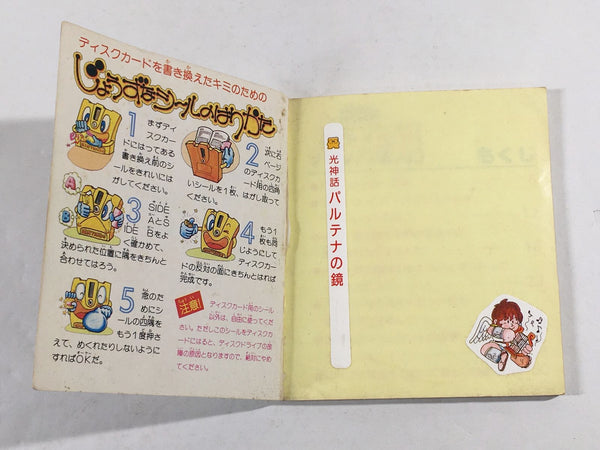 ディスクカードを書き換えたキミのための
じょうずなシールのはりかた
1 まずディ
スクカー
ドにはってある
書き換え前のシ
ールをきれいには
がしてください。
2 次に右
ページ
のディスクカ
ード用の四角
いシールを1枚、はがし取って
ください。
A
B
3 SIDE
AとS
IDE Bをよ
く確かめて、
決められた位置に隅をきちんと
合わせてはろう。
4 もう1
枚も同
じようにして
ディスクカー
ドの反対の面にきちんとはれば
完成です。
5 念のた
めにシ
ールの四隅を
もう1度押さ
えて、めくれたりしないように
すればOKだ。
注意!
ディスクカード用のシール
以外は、自由に使ってくだ
さい。ただしこのシールをディスクカ
ードにはると、ディスクドライブの故
障の原因となりますので、絶対にやめ
てください。
光神話 パルテナの鏡